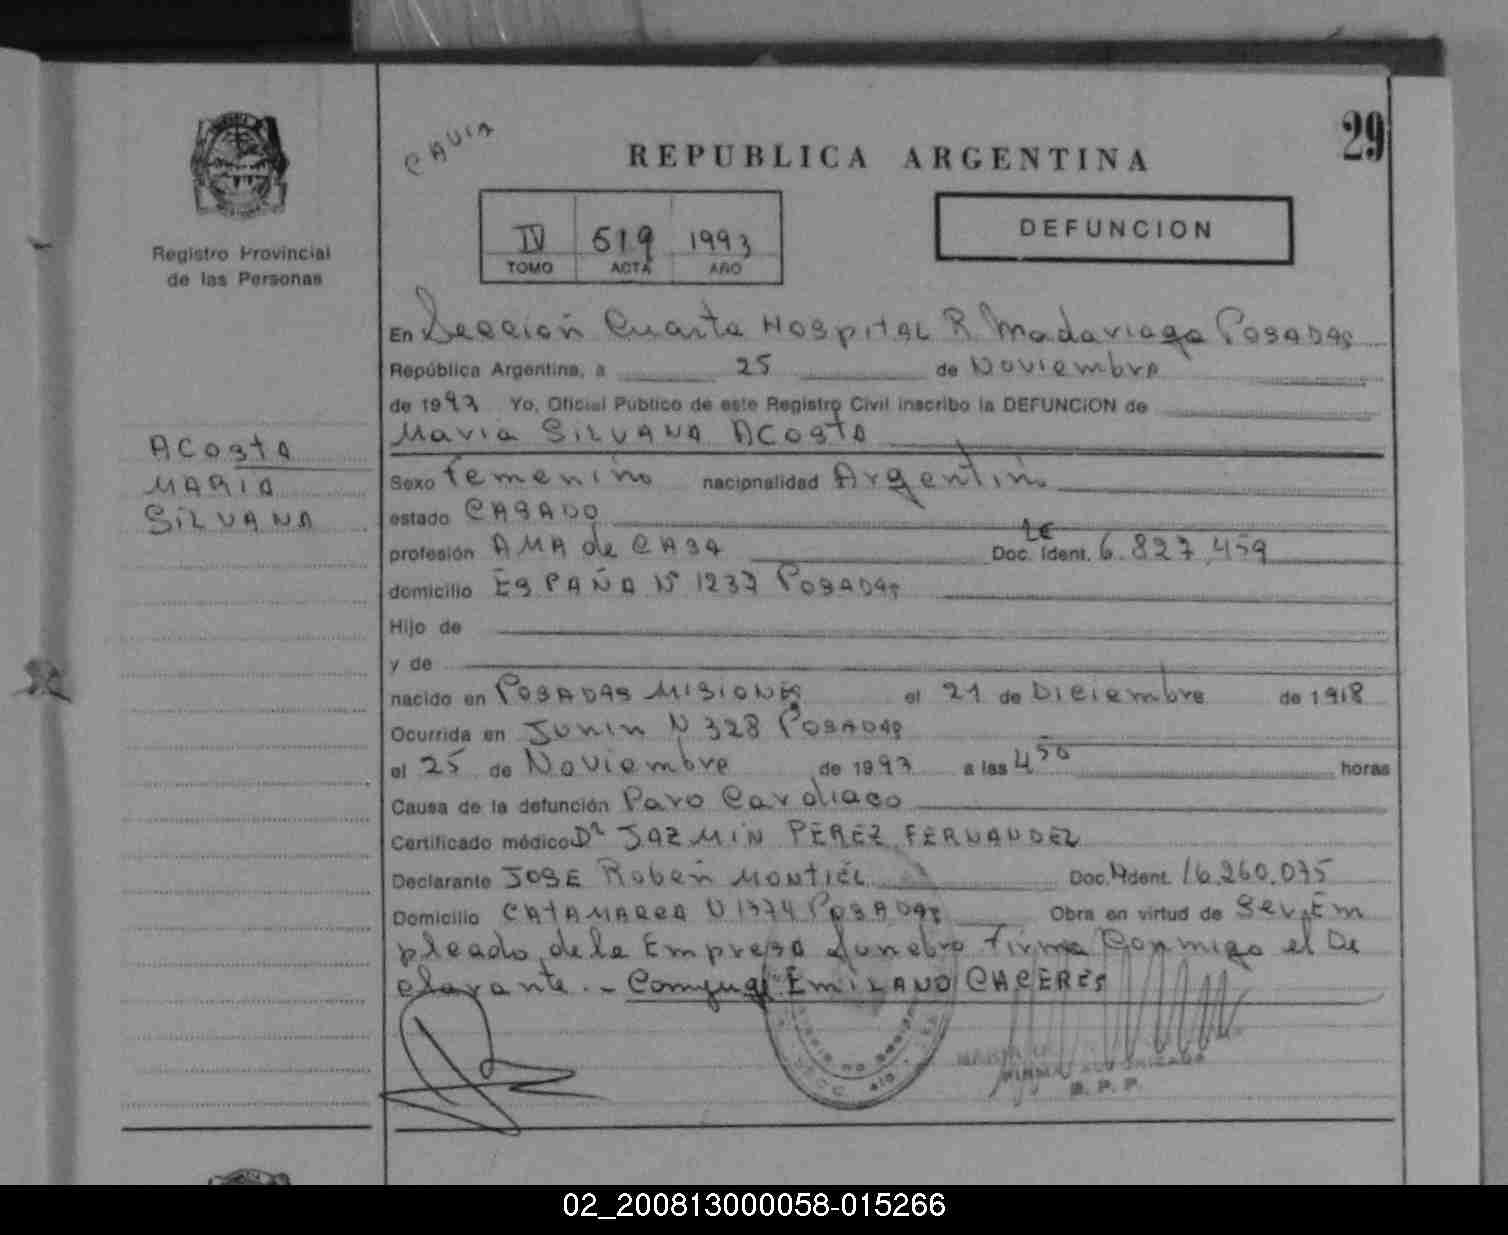 29
REPUBLICA ARGENTINA
Registro Provincial
de las Personas
IV 519 1993
TOMO ACTA AÑO
DEFUNCION
En Sección Cuarta Hospital R. Madariaga Posadas
República Argentina, a 25 de Noviembre
de 1993 Yo, Oficial Público de este Registro Civil inscribo la DEFUNCION de
Maria SILVANA ACOSTA
ACOSTA
MARIA
SILVANA
Sexo Femenino nacionalidad Argentino
estado CASADO
profesión AMA de CASA Doc. Ident. LC 6.827.459
domicilio ESPAÑA Nº 1237 POSADAS
Hijo de
y de
nacido en POSADAS MISIONES el 21 de Diciembre de 1918
Ocurrida en JUNIN N 328 POSADAS
el 25 de Noviembre de 1993 a las 4 50 horas
Causa de la defunción Paro Cardiaco
Certificado médico Dr JAZMIN PEREZ FERNANDEZ
Declarante JOSE Ruben MONTIEL Doc. Ident. 16.260.075
Domicilio CATAMARCA N 1374 POSADAS Obra en virtud de Ser Em
pleado de la Empresa funebre firma Conmigo el De
clarante. - Conyuge EMILIANO CACERES
FIRMA AUTORIZADA
R. P. P.
02_200813000058-015266